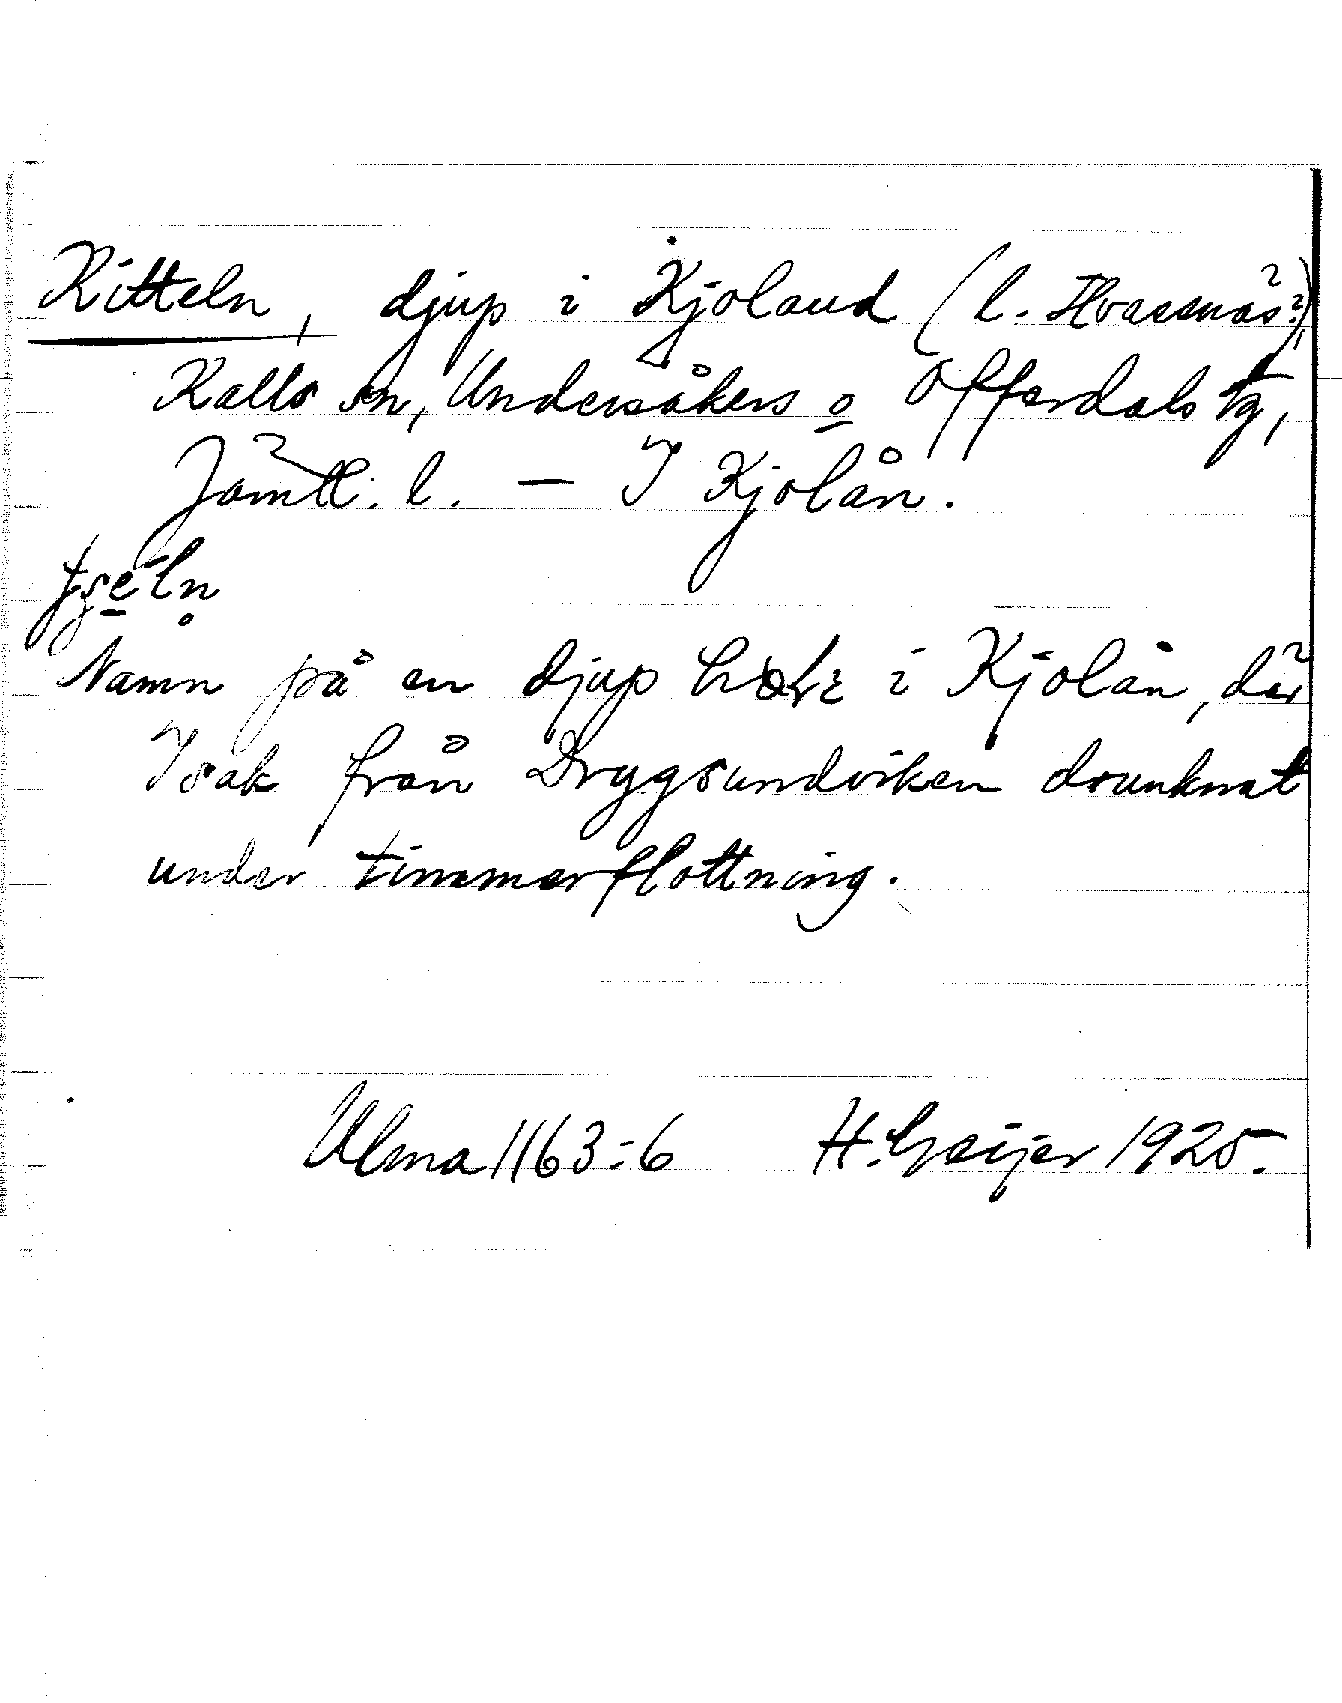 Kitteln, djup i Kjoland (l. Hvassnäs?)
Kalls sn, Undersåkers o Offerdals tg,
Jämtl. l. — I Kjolån.
Namn på en djup i Kjolån, där
Isak från Drygsundviken drunknat
under timmerflottning.
Ulma 1163:6 H. Geijer 1925.